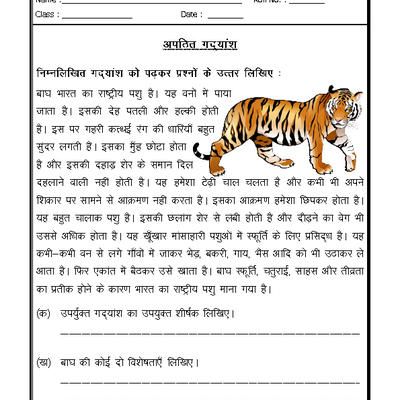 Name : ________ Roll No. : ________
Class : ________ Date : ________
अपठित गद्यांश
निम्नलिखित गद्यांश को पढ़कर प्रश्नों के उत्तर लिखिए :
बाघ भारत का राष्ट्रीय पशु है। यह वनों में पाया
जाता है। इसकी देह पतली और हल्की होती
है। इस पर गहरी कत्थई रंग की धारियाँ बहुत
सुंदर लगती हैं। इसका मुँह छोटा होता
है और इसकी दहाड़ शेर के समान दिल
दहलाने वाली नहीं होती है। यह हमेशा टेढ़ी चाल चलता है और कभी भी अपने
शिकार पर सामने से आक्रमण नहीं करता है। इसका आक्रमण हमेशा छिपकर होता है।
यह बहुत चालाक पशु है। इसकी छलांग शेर से लंबी होती है और दौड़ने का वेग भी
उससे अधिक होता है। यह खूँखार मांसाहारी पशुओं में स्फूर्ति के लिए प्रसिद्ध है। यह
कभी–कभी वन से लगे गाँवों में जाकर भेड़, बकरी, गाय, भैंस आदि को भी उठाकर ले
आता है। फिर एकांत में बैठकर उसे खाता है। बाघ स्फूर्ति, चतुराई, साहस और तीव्रता
का प्रतीक होने के कारण भारत का राष्ट्रीय पशु माना गया है।
(क) उपर्युक्त गद्यांश का उपयुक्त शीर्षक लिखिए।
(ख) बाघ की कोई दो विशेषताएँ लिखिए।